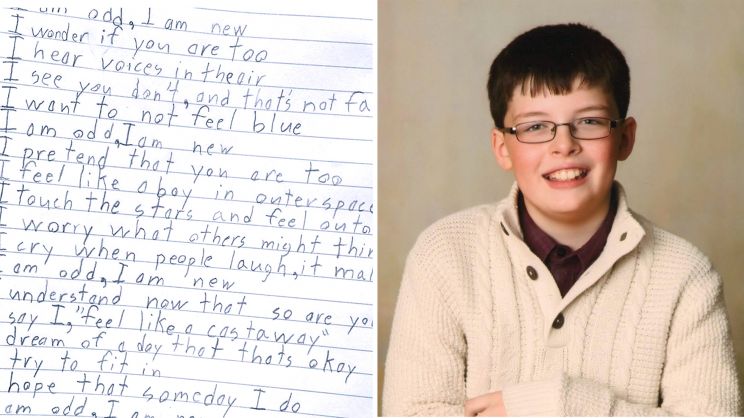 I am odd, I am new
I wonder if you are too
I hear voices in theair
I see you don't, and that's not fa
I want to not feel blue
I am odd, I am new
I pretend that you are too
I feel like a boy in outerspace
I touch the stars and feel outo
I worry what others might thin
I cry when people laugh, it mak
am odd, I am new
understand now that so are you
say I, "feel like a castaway"
dream of a day that thats okay
try to fit in
hope that someday I do
am odd, I am